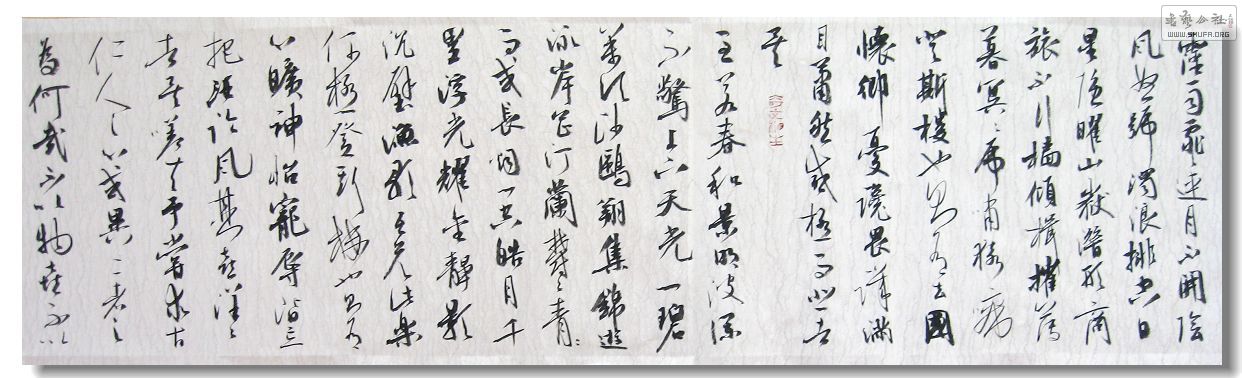 霪雨霏〻連月不開陰
風怒號濁浪排空日
星隐曜山嶽潛形商
旅不行檣傾楫摧薄
暮冥〻虎嘯猿啼
登斯樓也則有去國
懷鄉憂讒畏譏滿
目蕭然感極而悲者
矣
至若春和景明波瀾
不驚上下天光一碧
萬頃沙鷗翔集錦遊
泳岸芷汀蘭鬱〻青〻
而或長烟一空皓月千
里浮光耀金靜影
沉璧漁歌互答此樂
何極登斯樓也則有
心曠神怡寵辱皆忘
把酒臨風其喜洋〻
者矣嗟夫予嘗求古
仁人之心或異二者之
為何哉不以物喜不以
書藝公社
WWW.SHUFA.ORG